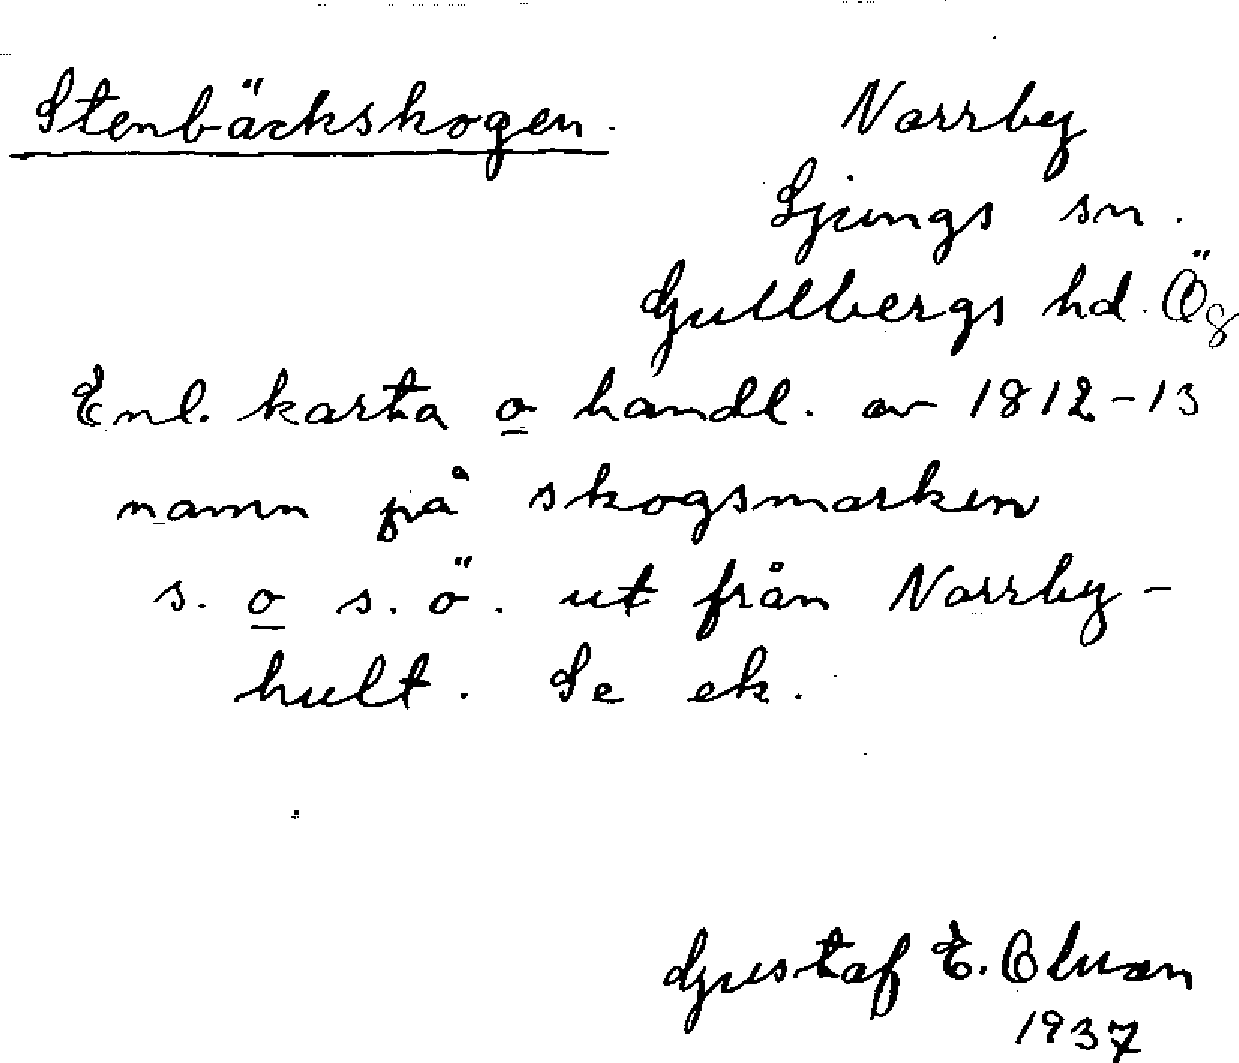 Stenbäckskogen. Norrby
Ljungs sn.
Gullbergs hd. Ög
Enl. karta o handl. av 1812-13
namn på skogsmarken
s. o s.ö. ut från Norrby-
hult. Se ek.
Gustaf E. Olsson
1937